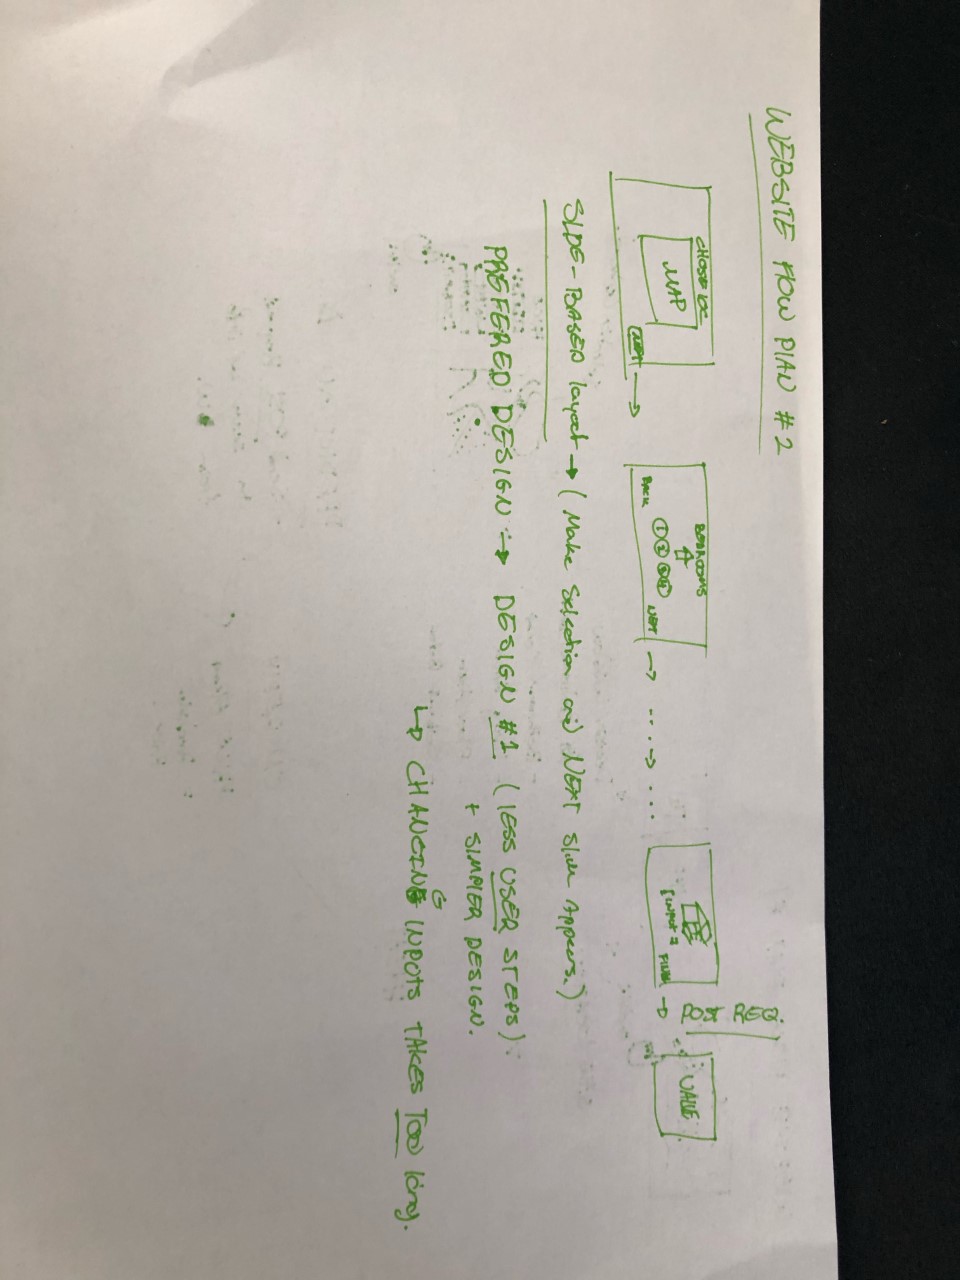 WEBSITE FLOW PLAN #2
CHOOSE LOC
MAP
NEXT
BEDROOMS
1 2 3 4
BACK NEXT
INPUT
POST REQ.
VALUE
SLIDE-BASED layout → (Make selection and NEXT slide Appears.)
PREFERED DESIGN → DESIGN #1 (LESS USER STEPS)
+ SIMPLER DESIGN.
↳ CHANGING INPUTS TAKES TOO long.